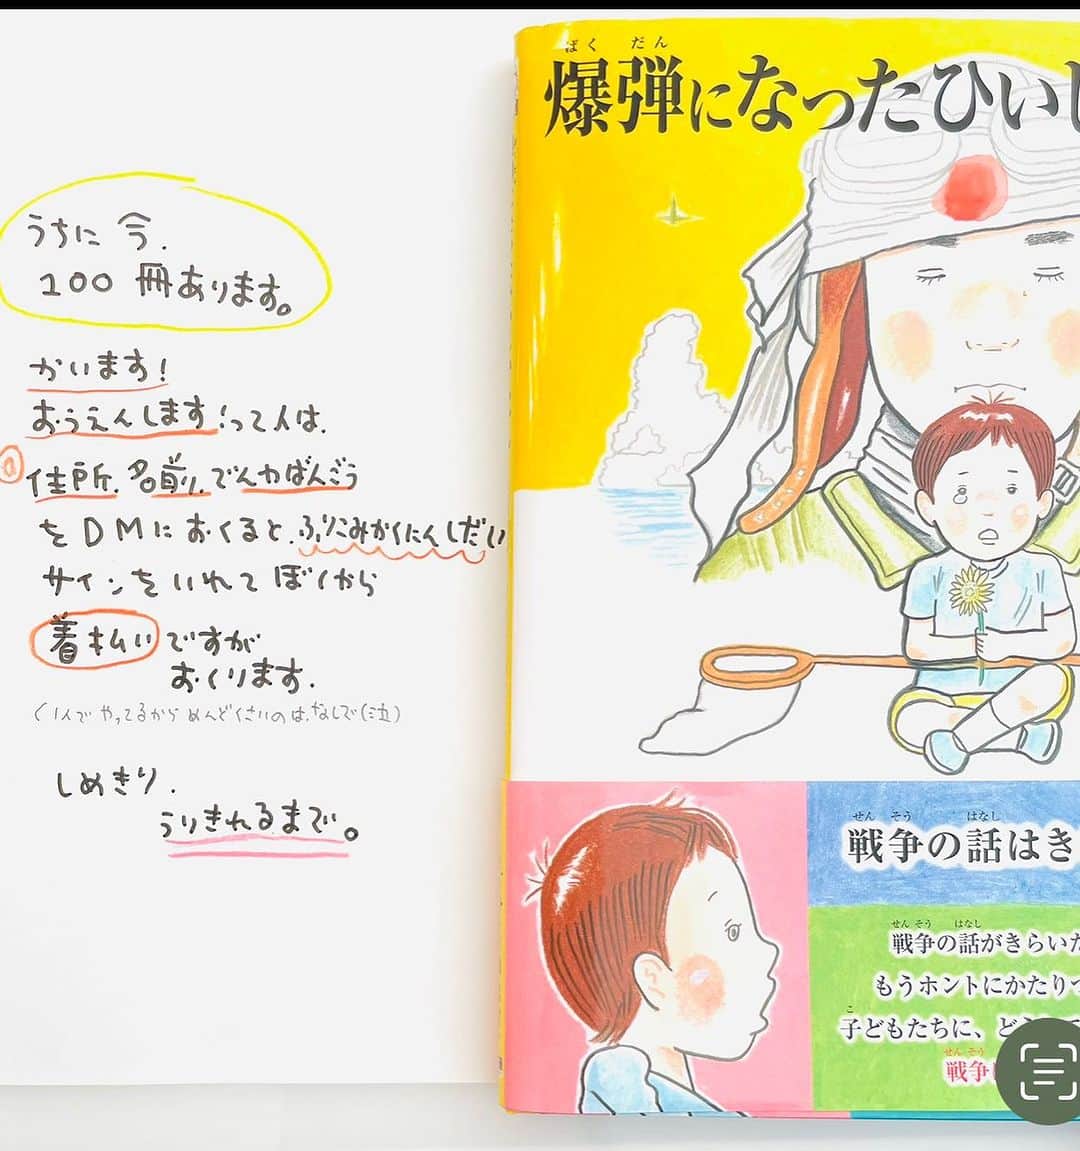 うちに今.
100冊あります。
かいます!
おうえんします!って人は.
住所.名前.でんわばんごう
をDMにおくると.ふりこみかくにんしだい
サインをいれてぼくから
着払いですが
おくります.
(1人でやってるからめんどくさいのは.なしで(泣)
しめきり.
うりきれるまで。
ばく だん
爆弾になったひいじ
せん そう はなし
戦争の話はき
せん そう はなし
戦争の話がきらいだ
もうホントにかたりつ
こ
子どもたちに、どう
せん そう
戦争